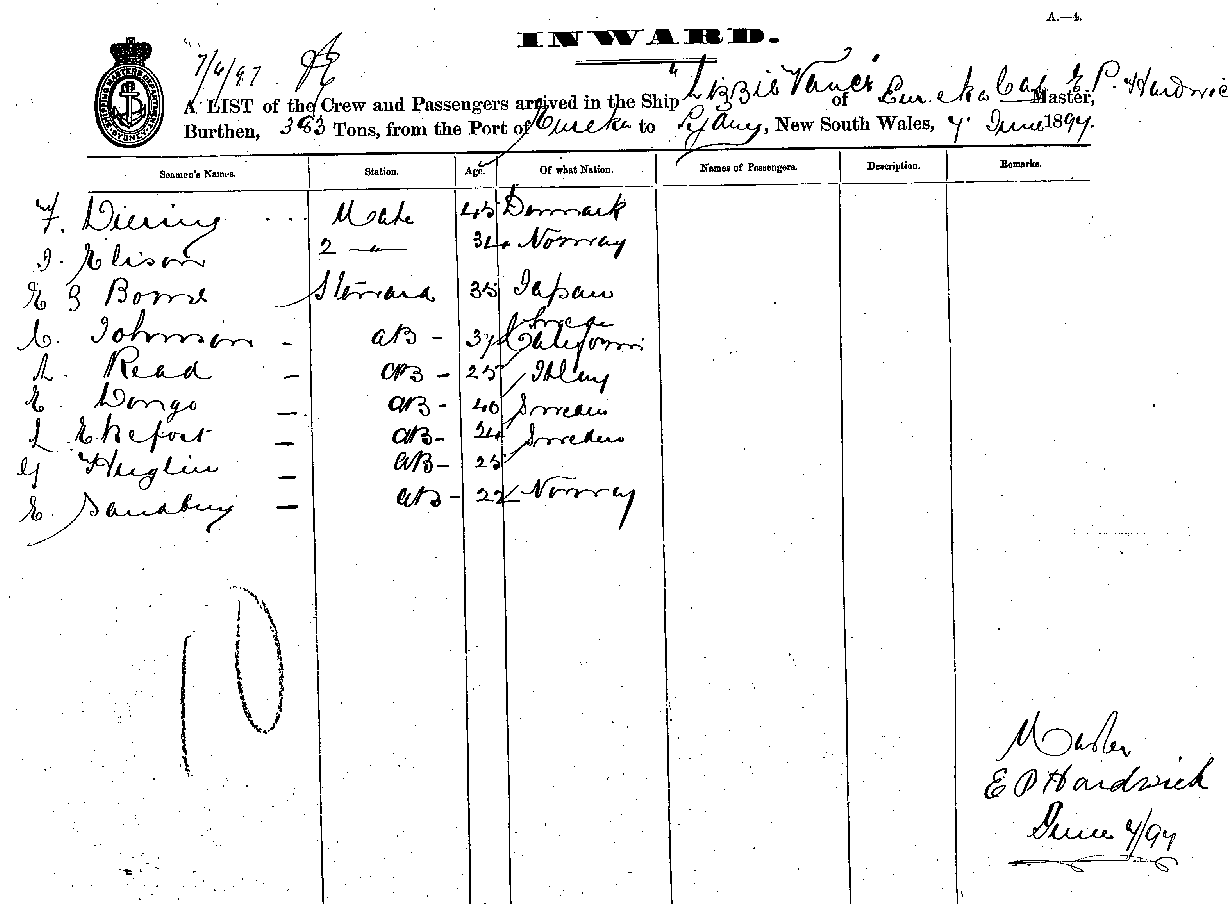 A.—4.
INWARD.
7/6/97
A LIST of the Crew and Passengers arrived in the Ship "Lizzie Vance" of Eureka Cal Master, E P. Hardwic
Burthen, 383 Tons, from the Port of Eureka to Sydney, New South Wales, 7 June 1897.
Seamen's Names. Station. Age. Of what Nation. Names of Passengers. Description. Remarks.
F. Diering ... Mate 45 Denmark
Elison 2 — " — 34 Norway
E Steward 35 Japan
C. Johnson - AB - 37 California
L. Read - AB - 25 Italy
E. - AB - 40 Sweden
L - AB - 24 Sweden
Huglin - AB - 25
E. Sandbury - AB - 22 Norway
10
Master
E P Hardwick
June 7/97